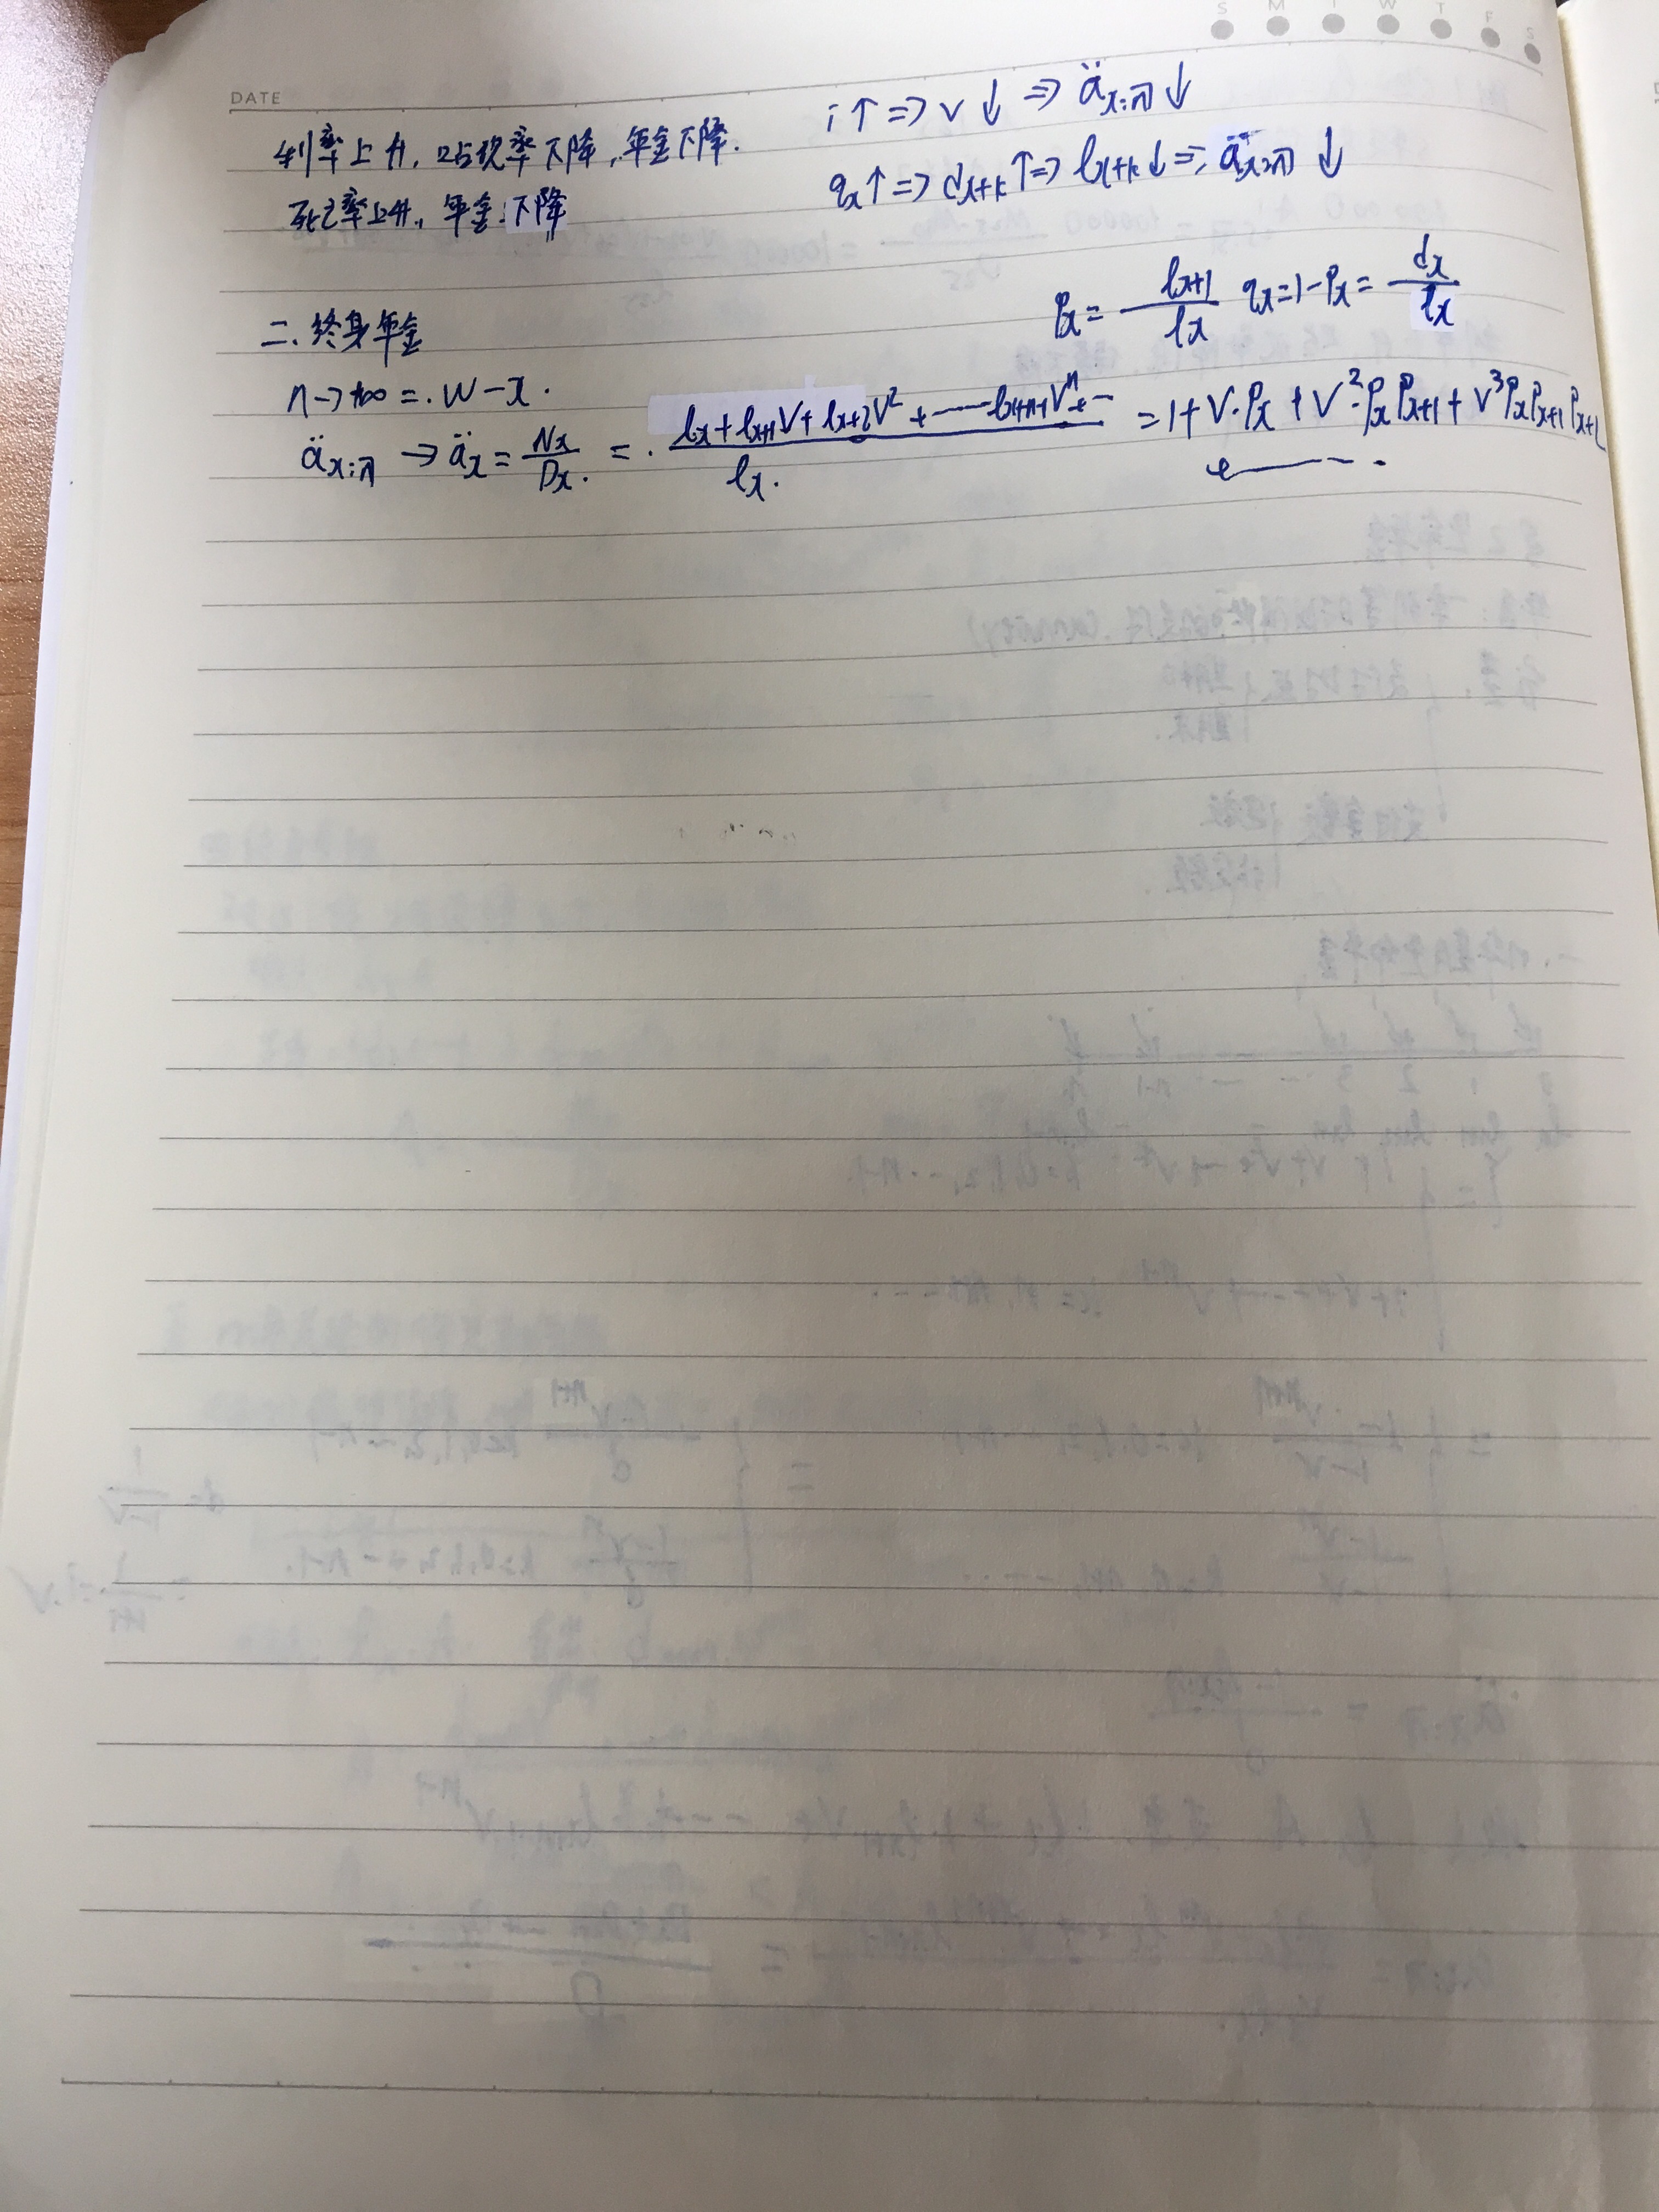 S M T W T F S
DATE
利率上升,贴现率下降,年金下降.
i↑=>v↓=>äx:n̅|↓
死亡率上升,年金下降
qx↑=>dx+k↑=>lx+k↓=>äx:n̅|↓
Px=lx+1/lx qx=1-Px=dx/lx
二.终身年金
n→+∞=.w-x.
äx:n̅|→äx=Nx/Dx.=.lx+lx+1V+lx+2V²+……lx+nVⁿ+…/lx.=1+V·Px+V²·PxPx+1+V³PxPx+1Px+2
+……